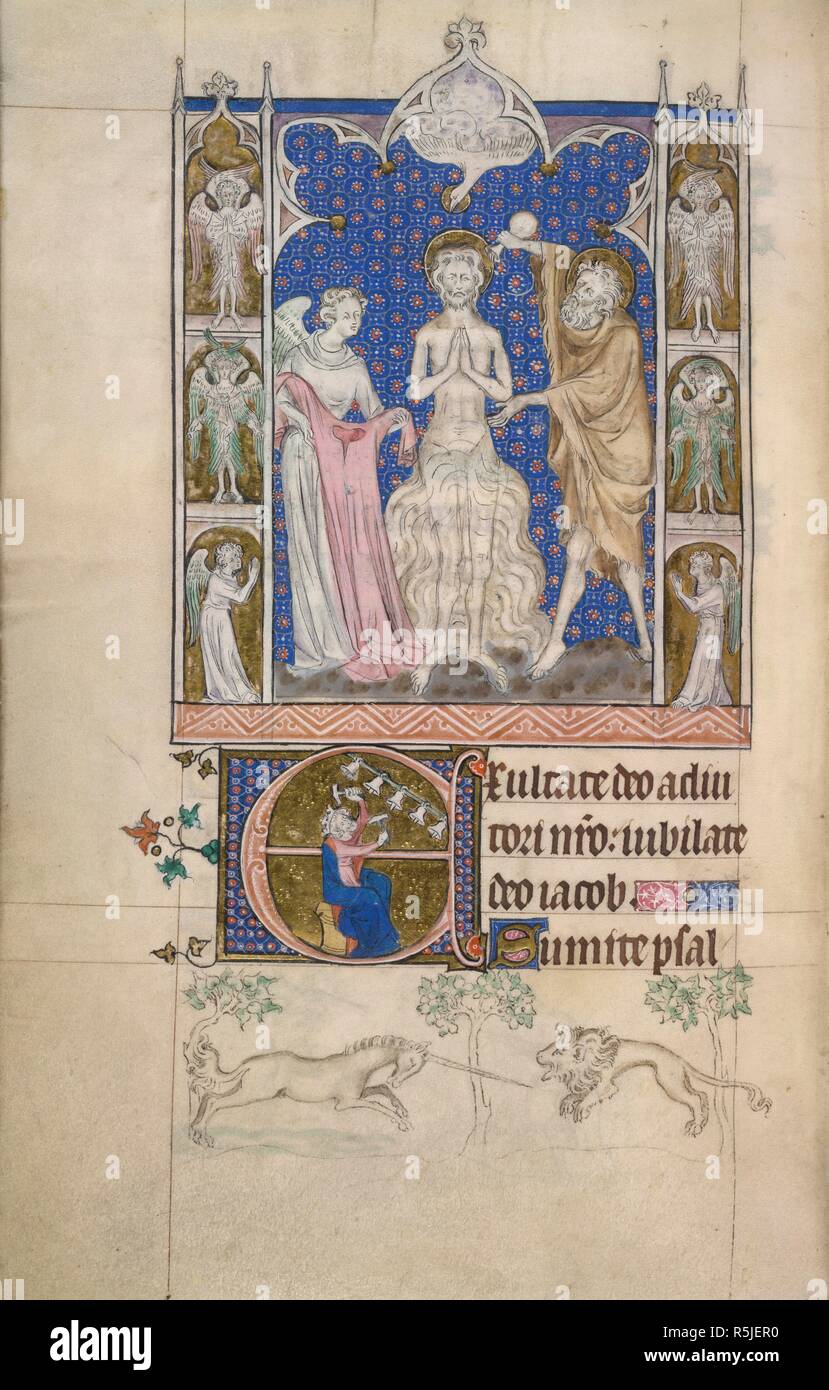 Exultate deo adiu
tori nr̄o: iubilate
deo iacob.
Sumite psal
alamy
Image ID: R5JER0
www.alamy.com